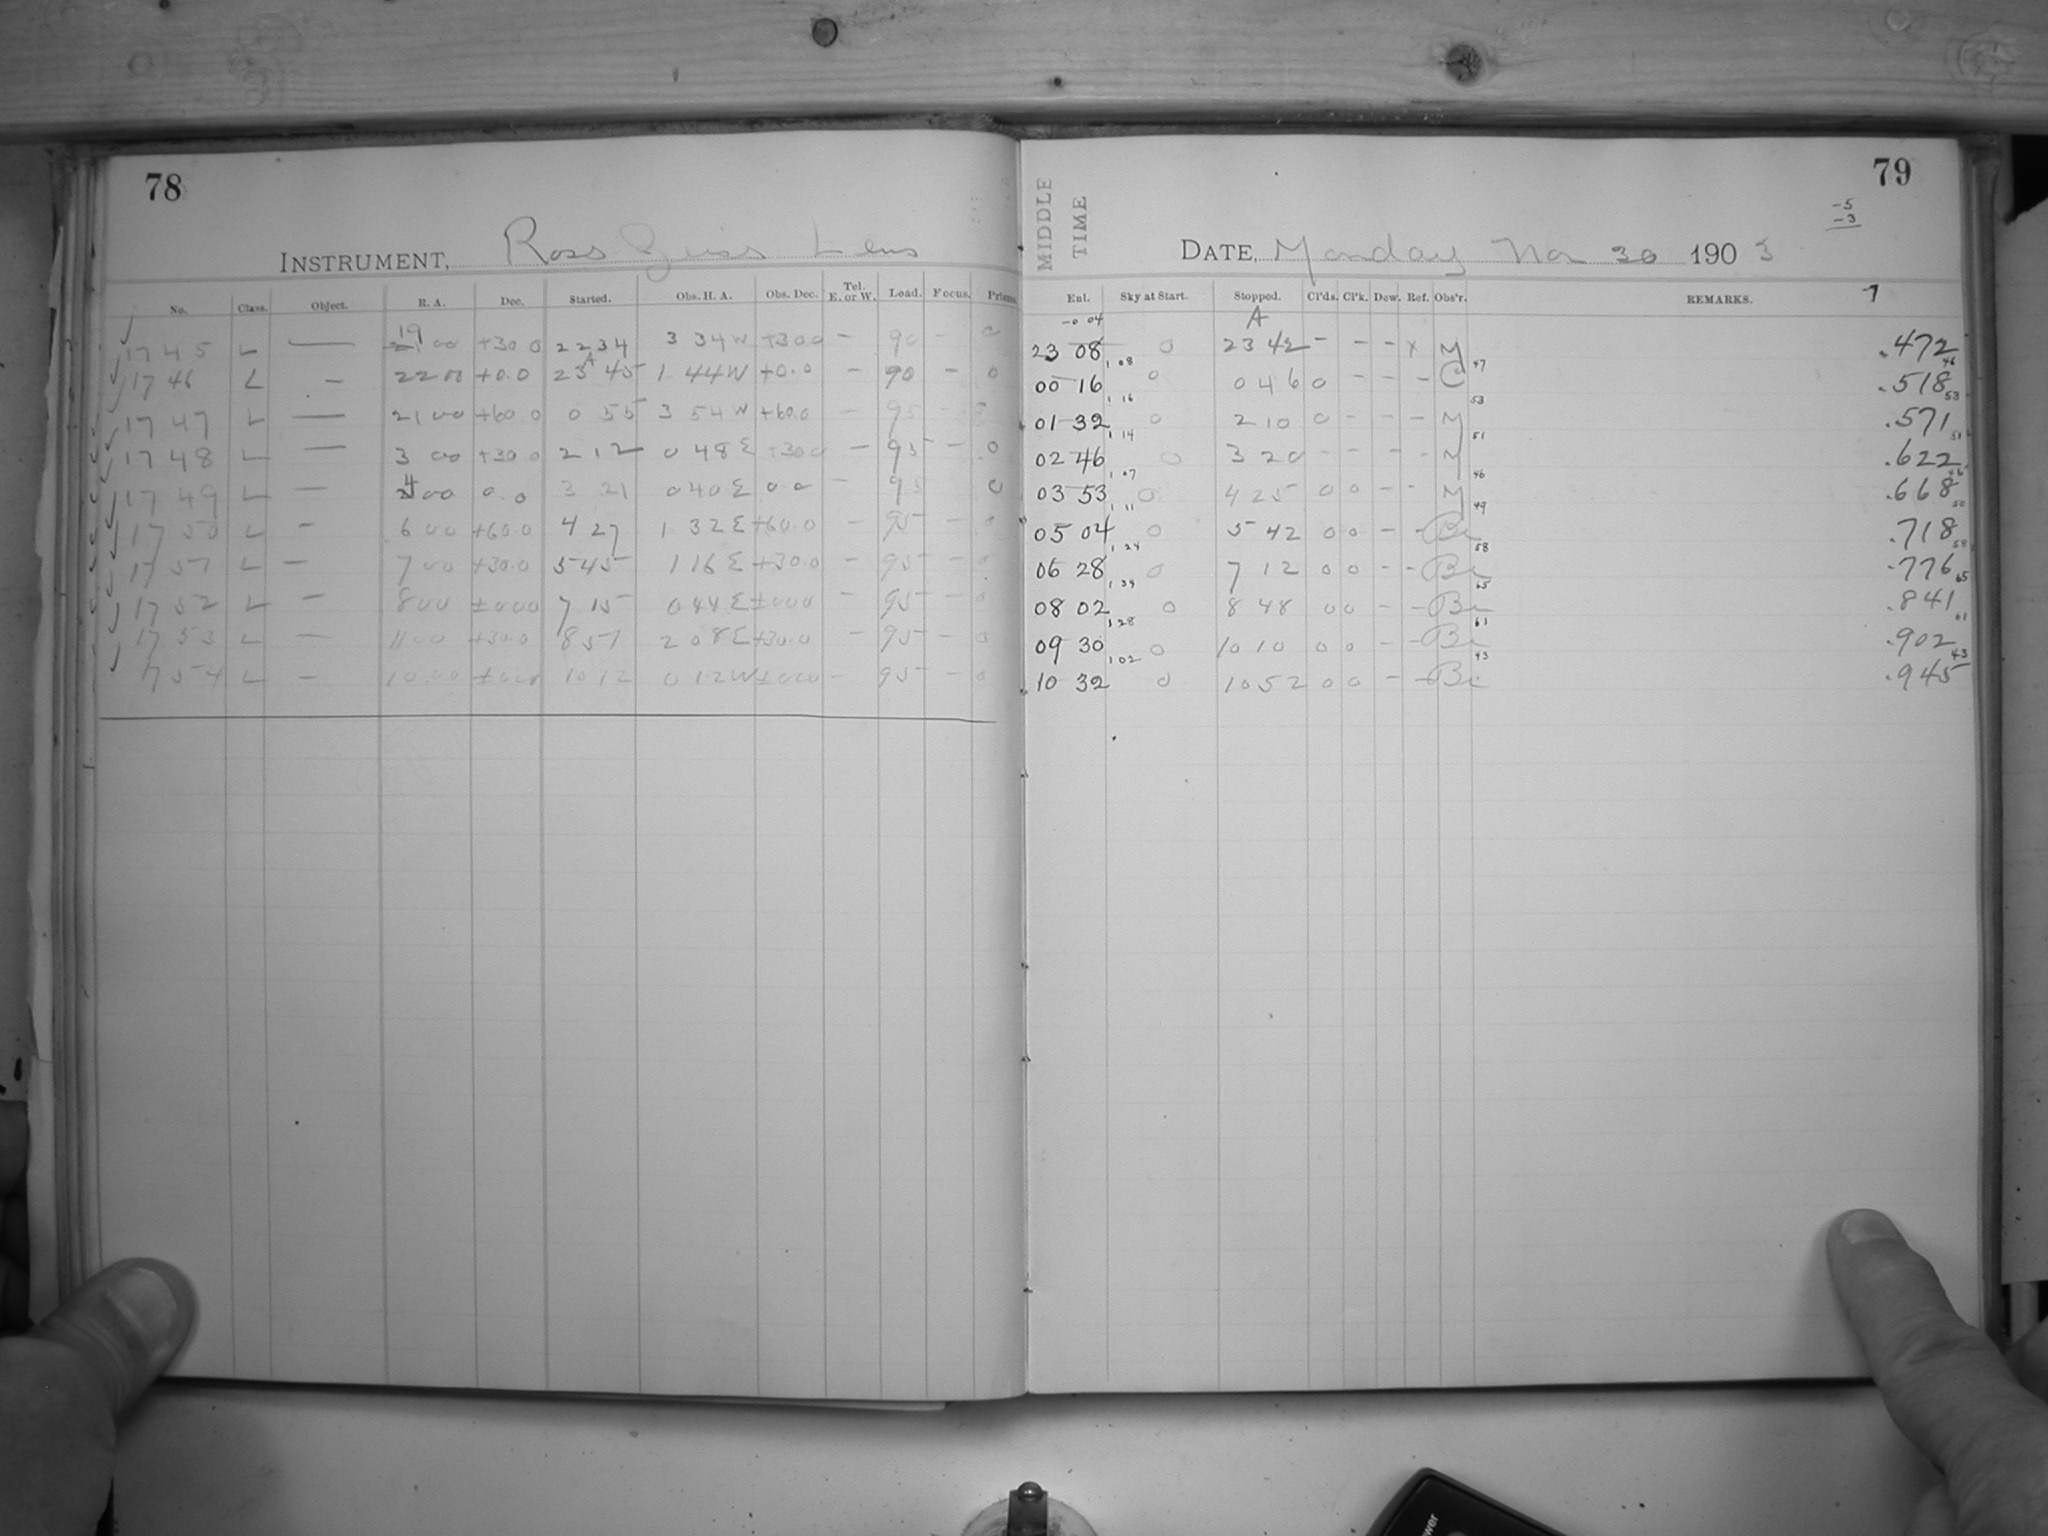 78
INSTRUMENT, Ross Zeiss Lens
No. Class. Object. R. A. Dec. Started. Obs. H. A. Obs. Dec. Tel. E. or W. Load. Focus. Prisms
1745 L — 19 00 +30.0 22 34 3 34 W +30.0 – 90 – 0
1746 L — 22 00 +0.0 23 45 1 44 W +0.0 – 90 – 0
1747 L — 21 00 +60.0 0 55 3 54 W +60.0 – 95 –
1748 L — 3 00 +30.0 2 12 0 48 E +30.0 – 95 – 0
1749 L — 4 00 0.0 3 21 0 40 E 0.0 – 95 0
1750 L — 6 00 +60.0 4 27 1 32 E +60.0 – 95 – 0
1751 L — 7 00 +30.0 5 45 1 16 E +30.0 – 95 – 0
1752 L — 8 00 ±000 7 15 0 44 E ±000 – 95 – 0
1753 L — 11 00 +30.0 8 57 2 08 E +30.0 – 95 – 0
1754 L — 10 00 ±000 10 12 0 12 W ±000 – 95 – 0
79
MIDDLE TIME
-5
-3
DATE, Monday Nov 30 1903
Enl. Sky at Start. Stopped. Cl'ds. Cl'k. Dew. Ref. Obs'r. REMARKS.
-0 04 A
23 08 0 23 42 – – – x M .472
1 08 47 46
00 16 0 0 46 0 – – – C .518
1 16 53 53
01 32 0 2 10 0 – – – M .571
1 14 51 51
02 46 0 3 20 – – – – M .622
1 07 46 46
03 53 0 4 25 0 0 – – M .668
1 11 49 50
05 04 0 5 42 0 0 – – Bi .718
1 24 58 58
06 28 0 7 12 0 0 – – Bi .776
1 34 65 65
08 02 0 8 48 0 0 – – Bi .841
1 28 61 61
09 30 0 10 10 0 0 – – Bi .902
1 02 43 43
10 32 0 10 52 0 0 – – Bi .945